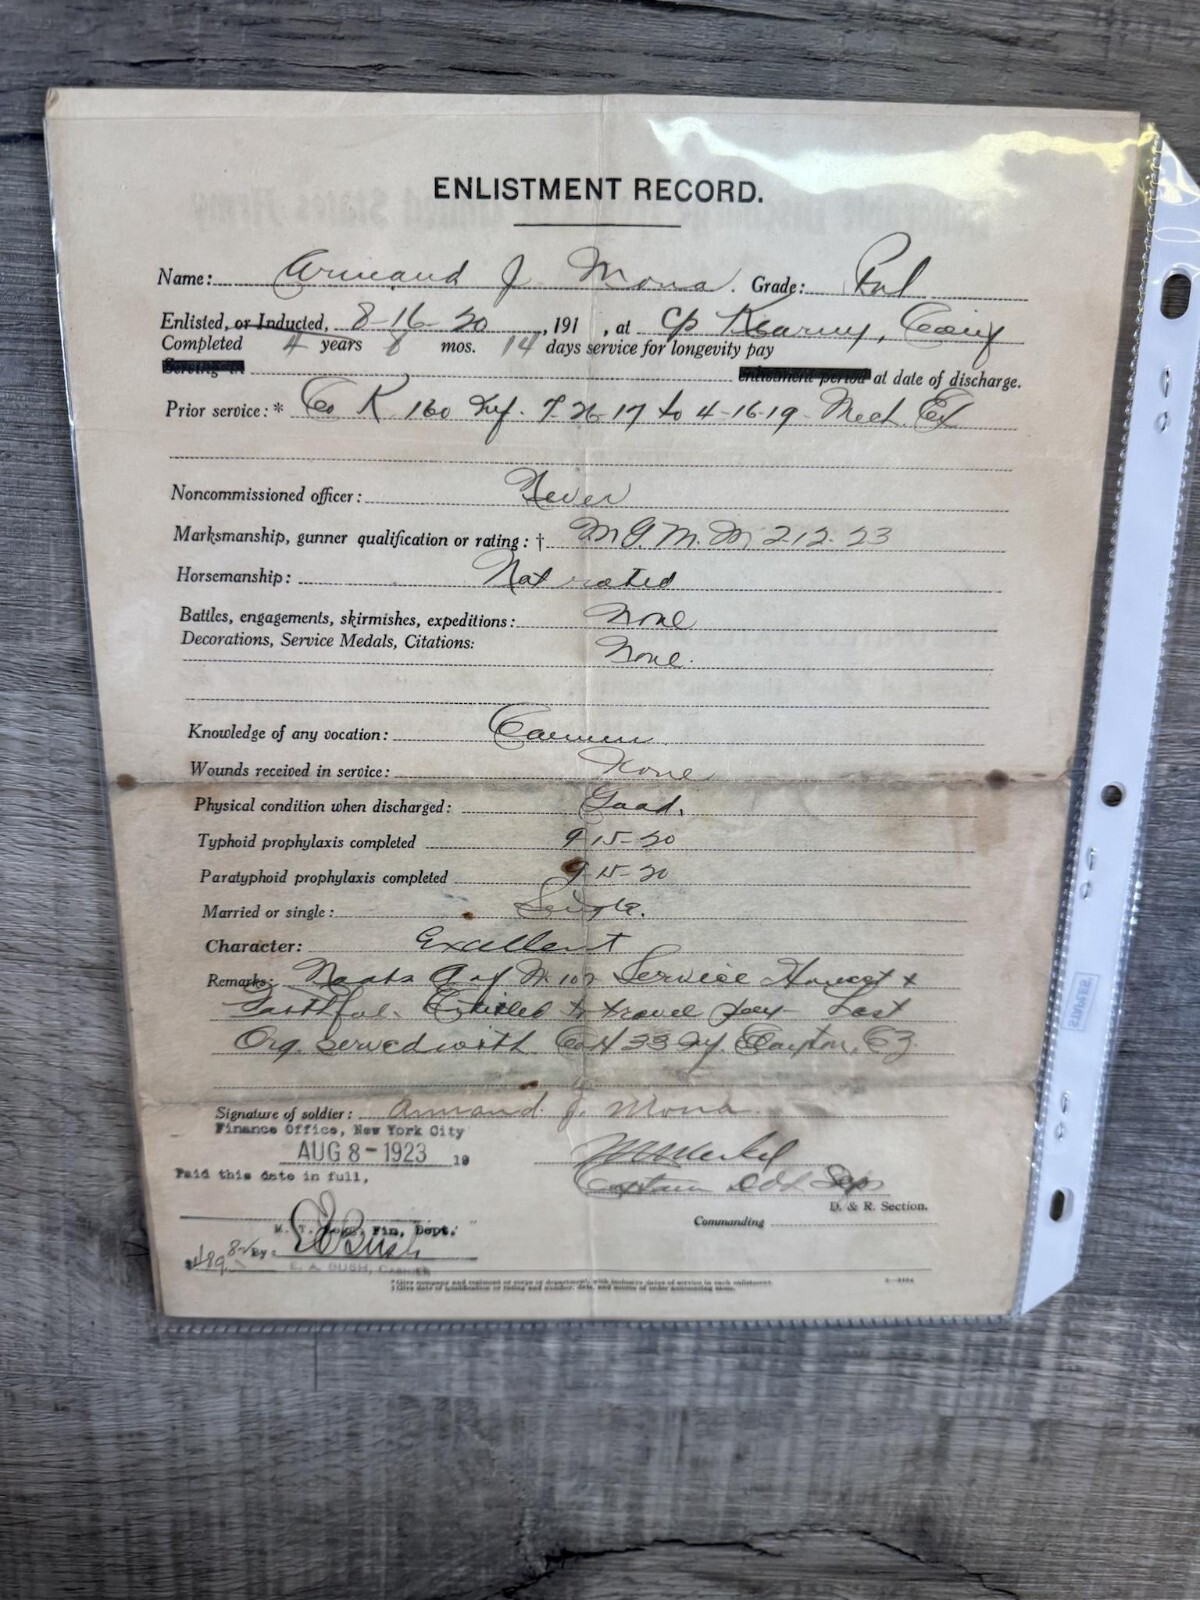 ENLISTMENT RECORD.
Name: Armand J. Mona. Grade: Pvt
Enlisted, or Inducted, 8-16-20, 191 , at Cp Kearny, Calif
Completed 4 years 8 mos. 14 days service for longevity pay
Serving in enlistment period at date of discharge.
Prior service:* Co K 160 Inf. 7-26-17 to 4-16-19 Mech. Ex
Noncommissioned officer: Never
Marksmanship, gunner qualification or rating: † M.G.M.M 2-12-23
Horsemanship: Not rated
Battles, engagements, skirmishes, expeditions: None
Decorations, Service Medals, Citations: None.
Knowledge of any vocation:
Wounds received in service: None
Physical condition when discharged: Good.
Typhoid prophylaxis completed 9-15-20
Paratyphoid prophylaxis completed 9-15-20
Married or single: Single.
Character: Excellent
Remarks: 107 Service Honest &
Faithful. Entitled to travel pay- Last
Org. served with Co H 33 Inf. Clayton, CZ.
Signature of soldier: Armand J. Mona
Finance Office, New York City
AUG 8-1923 19
Paid this date in full,
Captain
D. & R. Section.
Commanding
Fin, Dept.
By: E A Bush
E. A. BUSH, CASHIER
*Give company and regiment or corps or department, with inclusive dates of service in each enlistment.
†Give date of qualification or rating and number, date, and source of order announcing same.